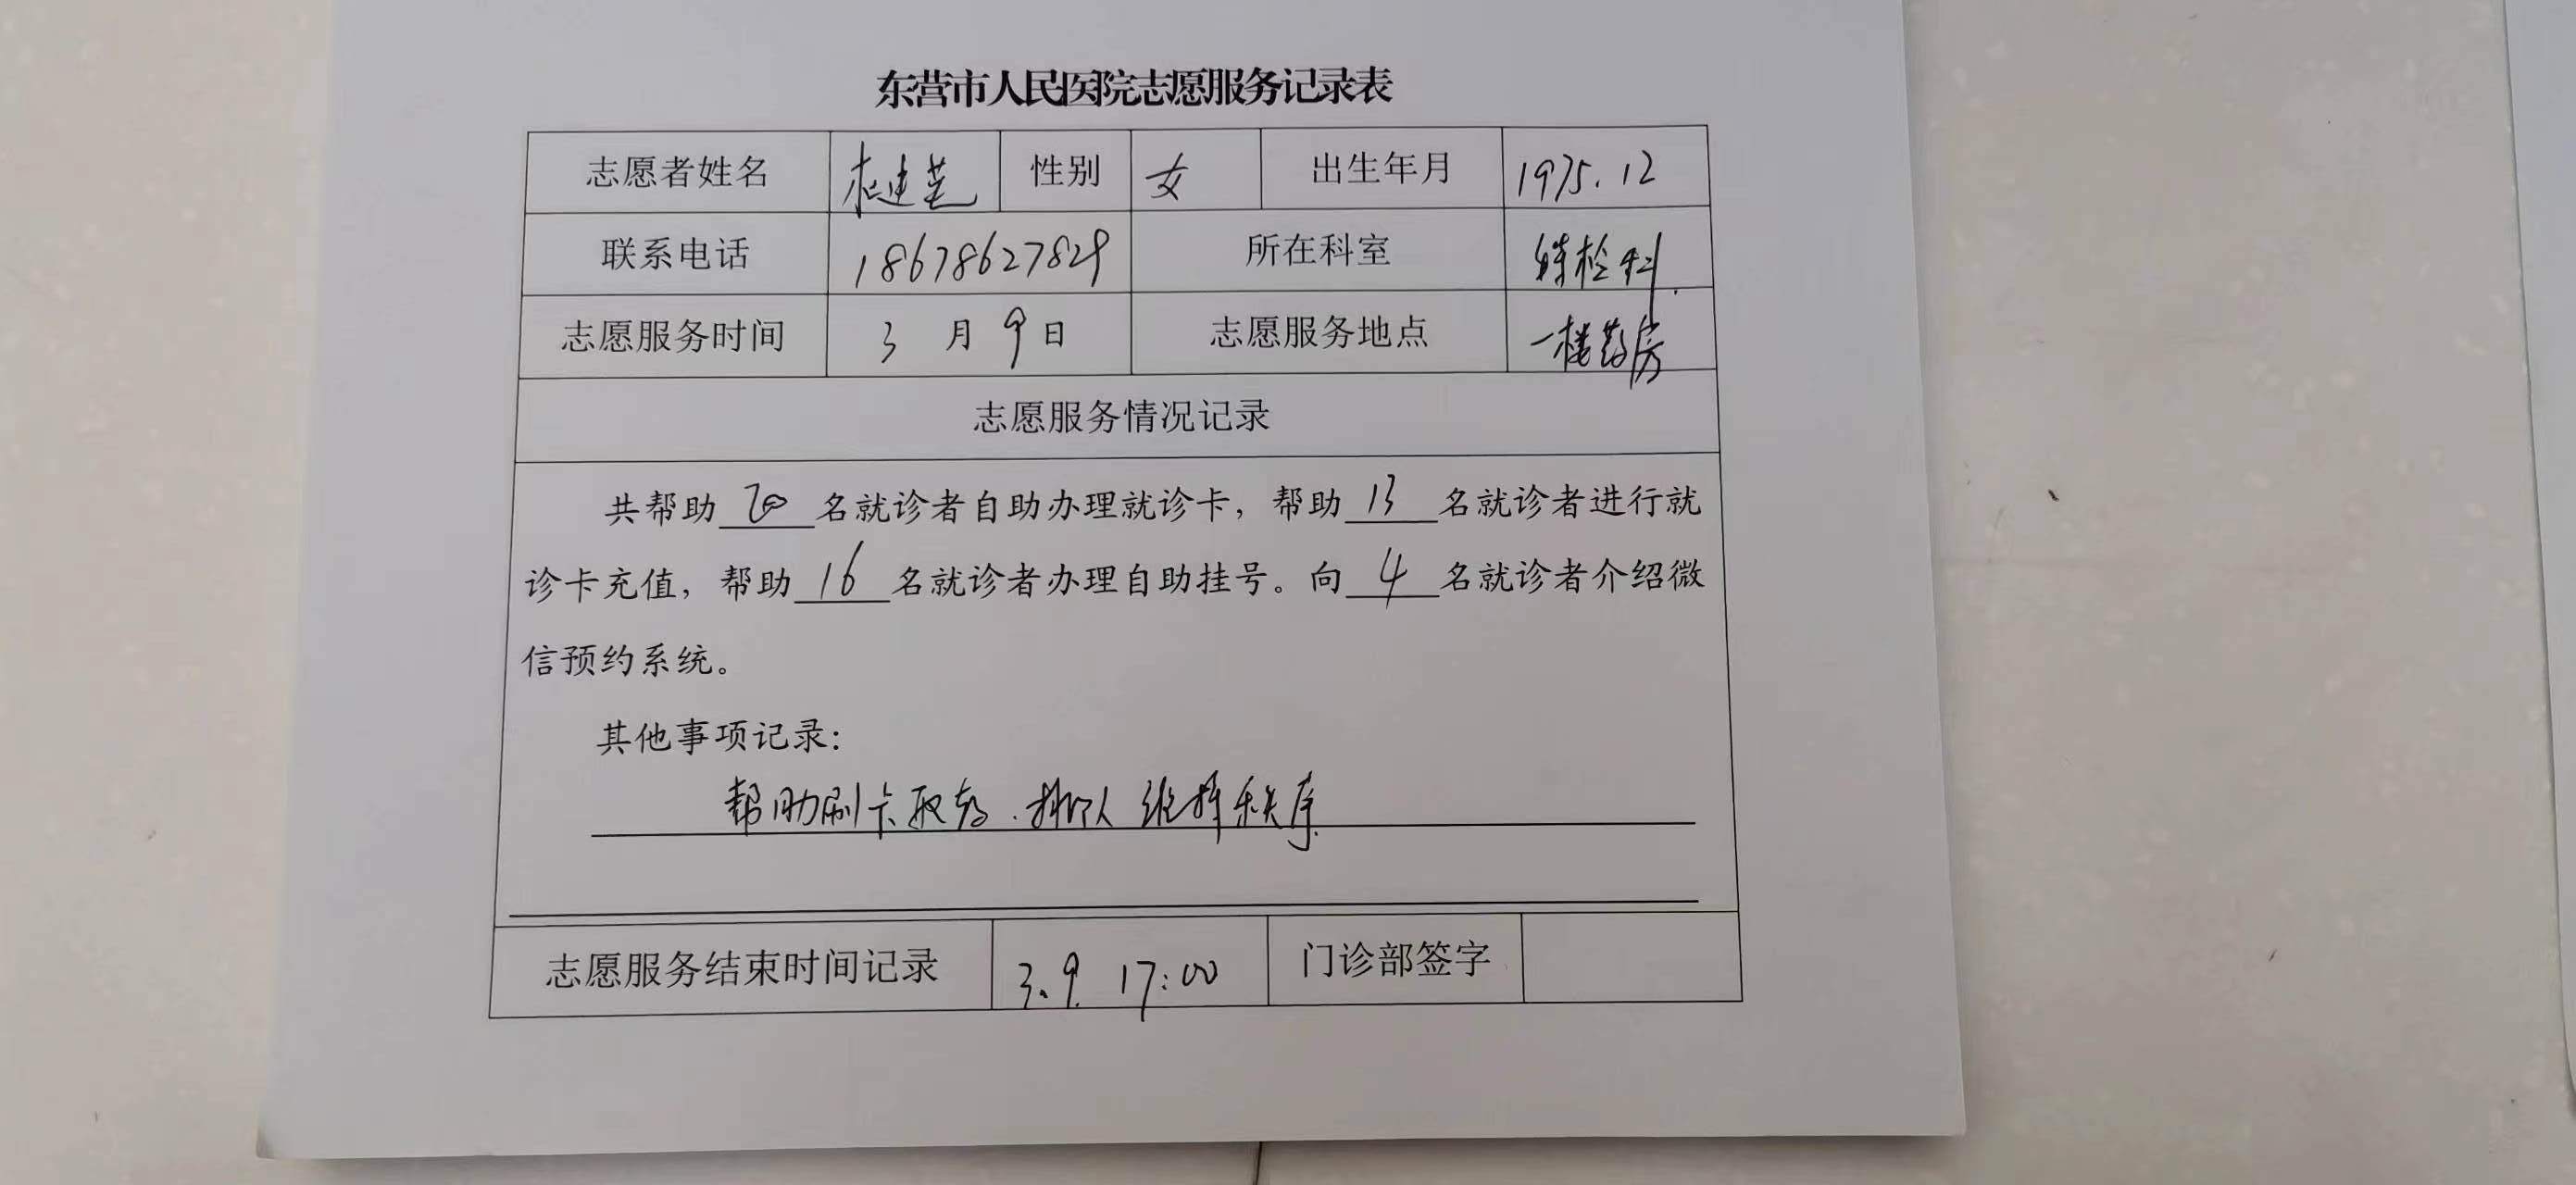 东营市人民医院志愿服务记录表
志愿者姓名 性别 女 出生年月 1975.12
联系电话 18678627829 所在科室 特检科
志愿服务时间 3 月 9 日 志愿服务地点 一楼药房
志愿服务情况记录
共帮助 20 名就诊者自助办理就诊卡，帮助 13 名就诊者进行就
诊卡充值，帮助 16 名就诊者办理自助挂号。向 4 名就诊者介绍微
信预约系统。
其他事项记录：
帮助刷卡取药.排队 维持秩序.
志愿服务结束时间记录 3.9. 17:00 门诊部签字